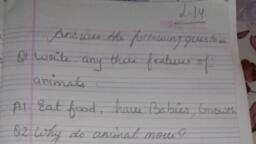 L-14
Answer the following question
Q1 Write any three features of
animals
A1 Eat food, have Babies, Grower
Q2 Why do animal move?